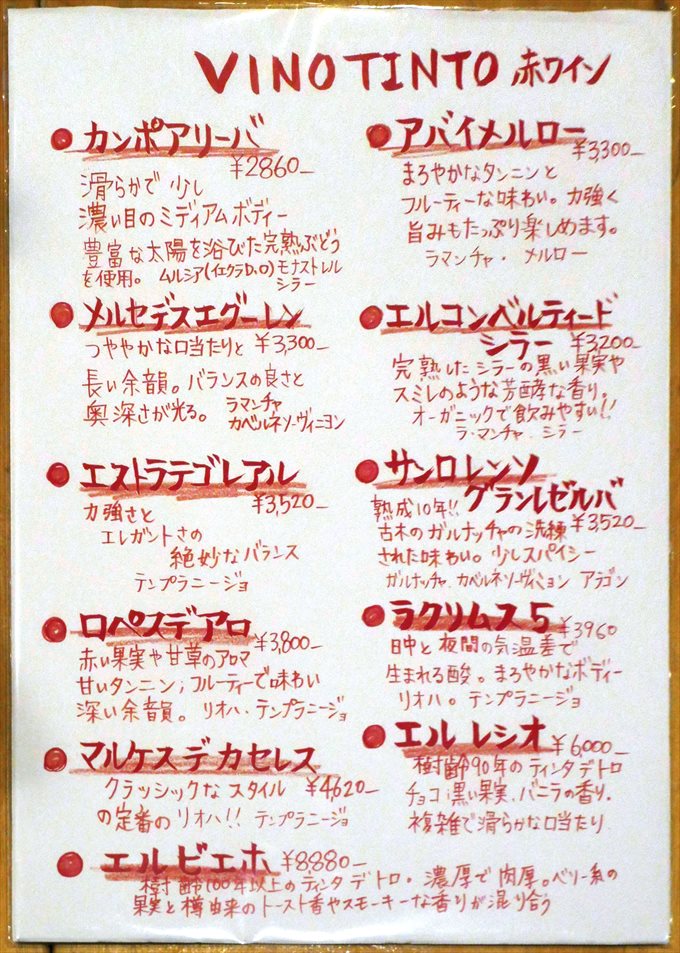 VINO TINTO 赤ワイン
カンポアリーバ
¥2860-
滑らかで 少し
濃い目のミディアムボディー
豊富な太陽を浴びた完熟ぶどう
を使用。 ムルシア(イエクラD.O) モナストレル
シラー
メルセデスエグーレン
つややかな口当たりと ¥3,300-
長い余韻。バランスの良さと
奥深さが光る。 ラマンチャ
カベルネソーヴィニヨン
エストラテゴレアル
¥3,520-
力強さと
エレガントさの
絶妙なバランス
テンプラニージョ
ロペスデアロ
¥3,800-
赤い果実や甘草のアロマ
甘いタンニン;フルーティーで味わい
深い余韻。 リオハ・テンプラニージョ
マルケスデカセレス
クラッシックな スタイル ¥4,620-
の定番の リオハ!! テンプラニージョ
アバイメルロー
¥3,300-
まろやかなタンニンと
フルーティーな味わい。力強く
旨みもたっぷり楽しめます。
ラマンチャ・メルロー
エルコンベルティード
シラー ¥3,200-
完熟したシラーの黒い果実や
スミレのような芳酵な香り。
オーガニックで飲みやすい!!
ラ・マンチャ シラー
サンロレンソ
グランレゼルバ
熟成10年!! ¥3,520-
古木のガルナッチャの洗練
された味わい。少しスパイシー
ガルナッチャ.カベルネソーヴィニヨン アラゴン
ラクリムス5
¥3960
日中と夜間の気温差で
生まれる酸。まろやかなボディー
リオハ。テンプラニージョ
エル レシオ ¥6,000-
樹齢90年のティンタデトロ
チョコ,黒い果実.バニラの香り.
複雑で滑らかな口当たり
エルビエホ ¥8,880-
樹齢100年以上のティンタデトロ・濃厚で肉厚。ベリー系の
果実と樽由来のトースト香やスモーキーな香りが混り合う